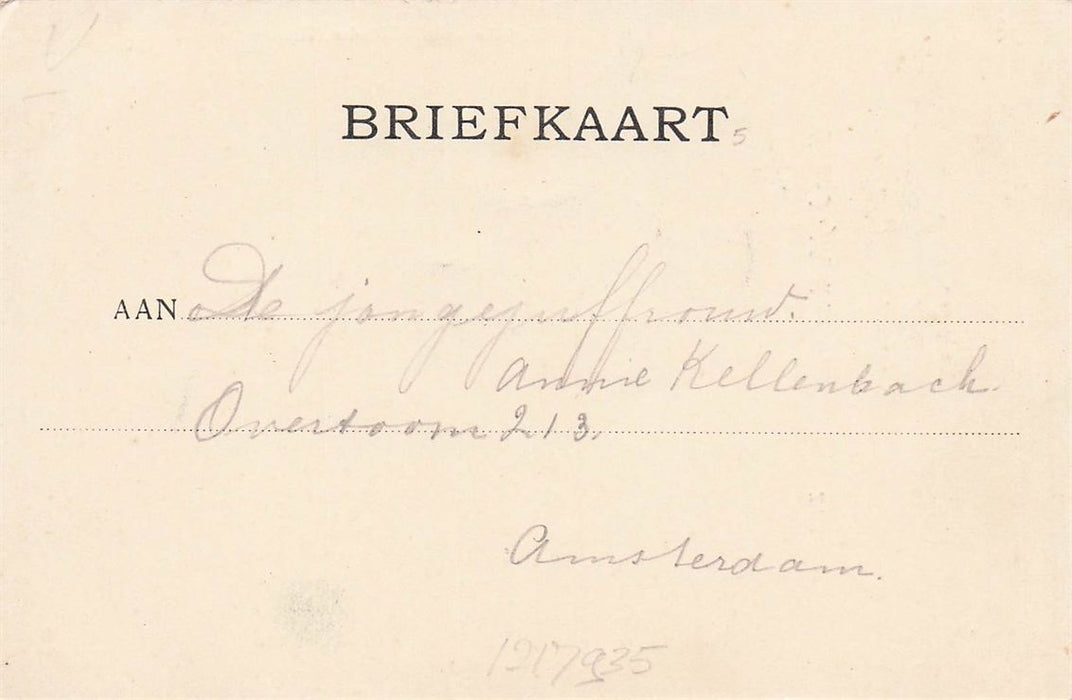 BRIEFKAART
5
AAN De jongejuffrouw.
Annie Kellenbach.
Overtoom 213.
Amsterdam.
1217935